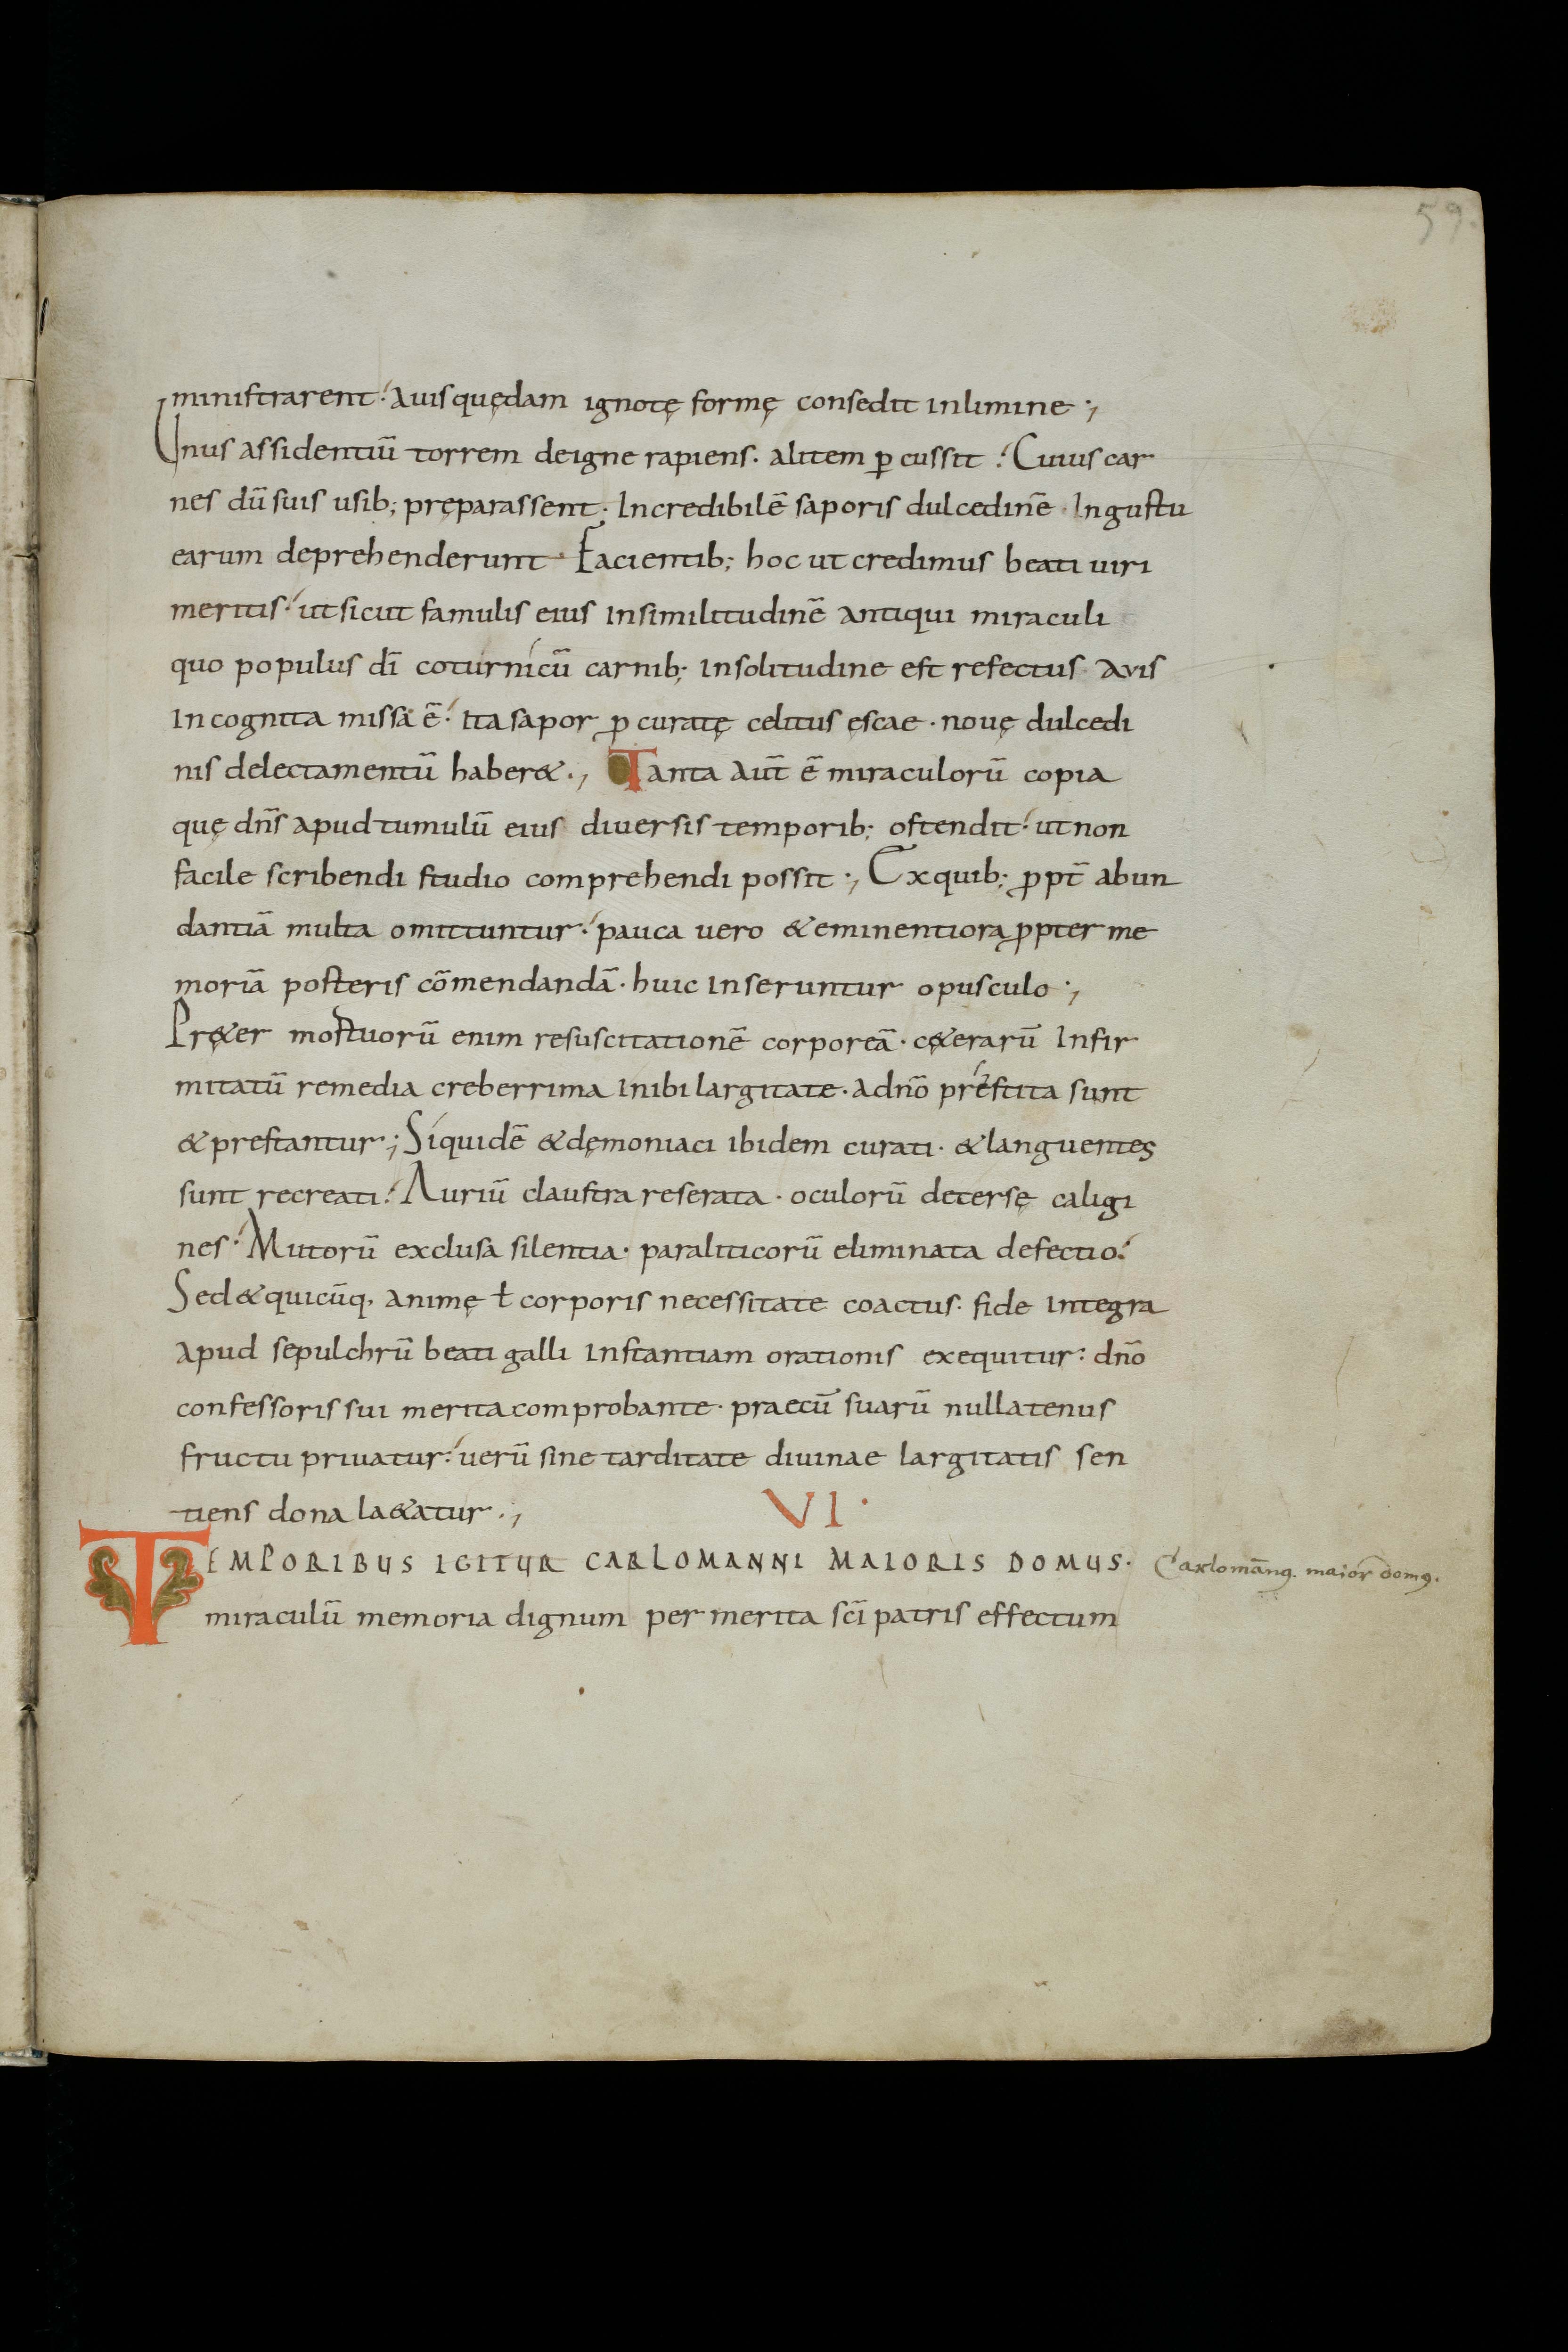 59.
ministrarent: auis quędam ignotę formę consedit in limine ;
Unus assidentiū torrem de igne rapiens. alitem ꝑcussit: Cuius car
nes dū suis usib; pręparassent. Incredibilē saporis dulcedinē. In gustu
earum deprehenderunt. Facientib; hoc ut credimus beati uiri
meritis: ut sicut famulis eius In similitudinē antiqui miraculi
quo populus dī coturnicū carnib; In solitudine est refectus avis
Incognita missa ē: Ita sapor ꝓcuratę celitus ęscae. nouę dulcedi
nis delectamentū haber&.; Tanta aūt ē miraculorū copia
quę dn̄s apud tumulū eius diuersis temporib; ostendit: ut non
facile scribendi studio comprehendi possit.; Ex quib; ꝓpt̄ abun
dantiā multa omittuntur: pauca uero & eminentiora ꝓpter me
moriā posteris cōmendandā. huic Inseruntur opusculo.;
Pręt&er mortuorū enim resuscitationē corporeā. c&erarū Infir
mitatū remedia creberrima Inibi largitate. a dn̄o pręstita sunt
& prestantur; Siquidē & dęmoniaci ibidem curati. & languentes
sunt recreati: Auriū claustra reserata. oculorū detersę caligi
nes: Mutorū exclusa silentia. paraliticorū eliminata defectio:
Sed & quicūq. animę ł corporis necessitate coactus. fide Integra
apud sepulchrū beati galli Instantiam orationis exequitur: dn̄o
confessoris sui merita comprobante. praecū suarū nullatenus
fructu priuatur: uerū sine tarditate diuinae largitatis sen
tiens dona la&atur.;
VI.
TEMPORIBUS IGITUR CARLOMANNI MAIORIS DOMUS.
Carlomānꝯ. maior domꝯ.
miraculū memoria dignum per merita sc̄i patris effectum